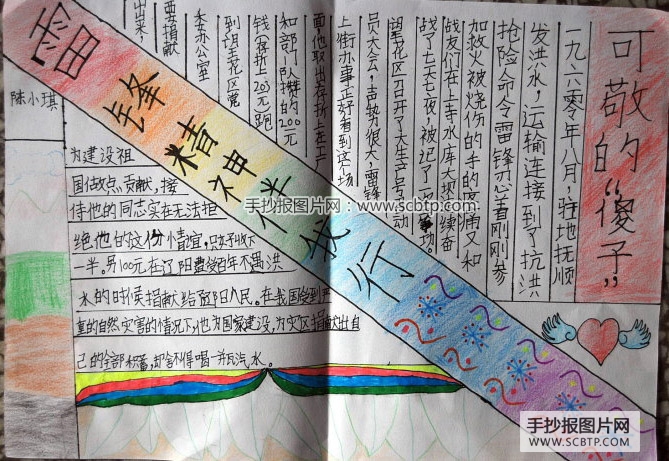 可敬的“傻子”
一九六零年八月，驻地抚顺
发洪水，运输连接到了抗洪
抢险命令雷锋忍着刚刚参
加救火被烧伤的手的疼痛又和
战友们在上寺水库大坝连续奋
战了七天七夜，被记了一次
望花区召开了大生产号
员大会，声势很大，雷锋
上街办事正好看到这个场
面，他取出存折上在工厂
和部队攒的200元
钱（存折上203元）跑
到望花区党
委办公室
要捐献
出来，
为建设祖
国做点贡献，接
侍他的同志实在无法拒
绝他的这份情谊，只好收下
一半。另100元在辽阳遭受百年不遇洪
水的时候捐献给辽阳人民。在我国受到严
重的自然灾害的情况下，他为国家建设，为灾区捐献出自
己的全部积蓄，却舍不得喝一瓶汽水。
雷锋精神伴我行
陈小琪
手抄报图片网：www.scbtp.com
手抄报图片网
WWW.SCBTP.COM